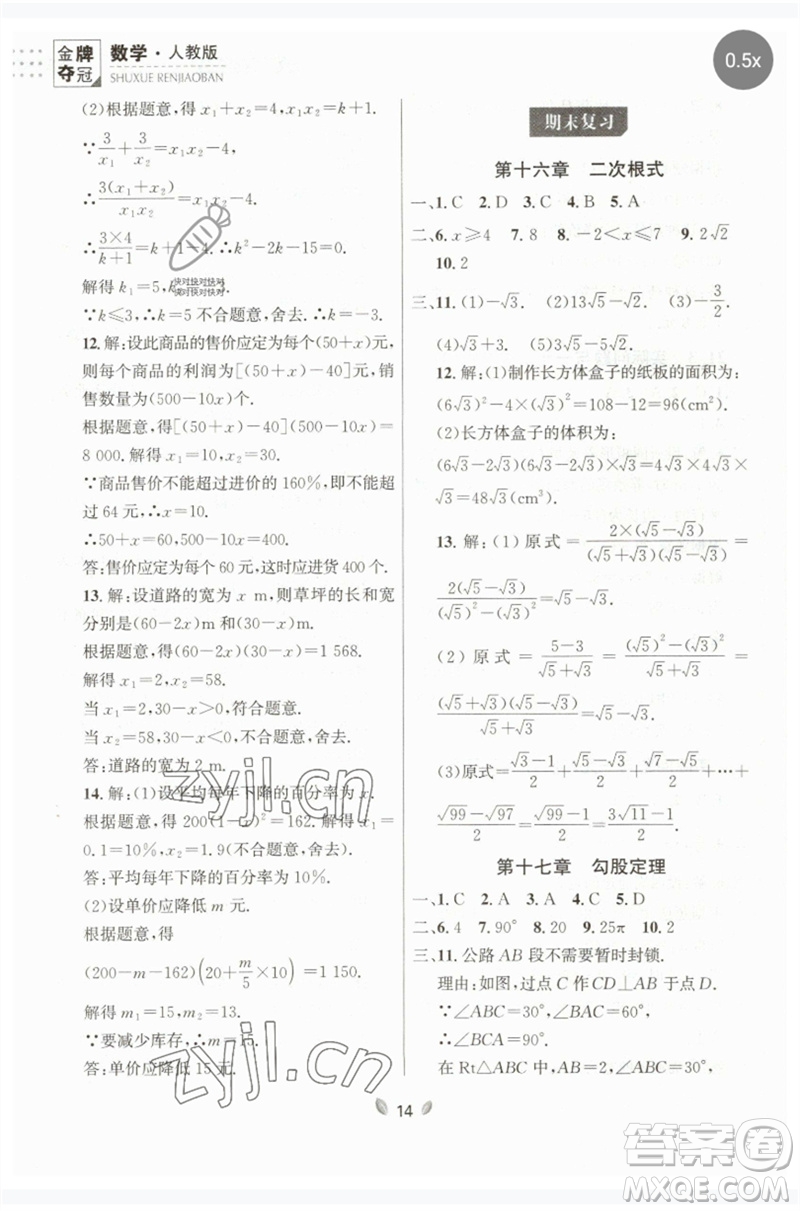 金牌夺冠
数学·人教版
SHUXUE RENJIAOBAN
0.5x
(2)根据题意,得 x₁+x₂=4,x₁x₂=k+1.
∵3/x₁+3/x₂=x₁x₂-4,
∴3(x₁+x₂)/x₁x₂=x₁x₂-4.
∴3×4/k+1=k+1-4.∴k²-2k-15=0.
解得 k₁=5,k
快对快对快对
快对快对快对
∵k≤3,∴k=5 不合题意,舍去.∴k=-3.
12. 解:设此商品的售价应定为每个(50+x)元,
则每个商品的利润为[(50+x)-40]元,销
售数量为(500-10x)个.
根据题意,得[(50+x)-40](500-10x)=
8 000. 解得 x₁=10,x₂=30.
∵商品售价不能超过进价的 160%,即不能超
过 64 元,∴x=10.
∴50+x=60,500-10x=400.
答:售价应定为每个 60 元,这时应进货 400 个.
13. 解:设道路的宽为 x m,则草坪的长和宽
分别是(60-2x)m和(30-x)m.
根据题意,得(60-2x)(30-x)=1 568.
解得 x₁=2,x₂=58.
当 x₁=2,30-x>0,符合题意.
当 x₂=58,30-x<0,不合题意,舍去!
答:道路的宽为 2 m.
14. 解:(1)设平均每年下降的百分率为 x.
根据题意,得 200(1-x)²=162. 解得 x₁=
0.1=10%,x₂=1.9(舍去).
答:平均每年下降的百分率为 10%.
(2)设单价应降低 m 元.
根据题意,得
(200-m-162)(20+m/5×10)=1 150.
解得 m₁=15,m₂=13.
∵要减少库存,∴m=15.
答:单价应降低 15 元.
期末复习
第十六章 二次根式
一、1.C 2.D 3.C 4.B 5.A
二、6.x≥4 7.8 8.-2<x≤7 9.2√2
10.2
三、11.(1)-√3. (2)13√5-5√2. (3)-3/2.
(4)√3+3.
12. 解:(1)制作长方体盒子的纸板的面积为:
(6√3)²-4×(√3)²=108-12=96(cm²).
(2)长方体盒子的体积为:
(6√3-2√3)(6√3-2√3)×√3=4√3×4√3×
√3=48√3(cm³).
13. 解:(1)原式=2×(√5-√3)/(√5+√3)(√5-√3)=
2(√5-√3)/(√5)²-(√3)²=√5-√3.
(2)原式=5-3/√5+√3=(√5)²-(√3)²/√5+√3=
(√5+√3)(√5-√3)/√5+√3=√5-√3.
(3)原式=√3-1/2+√5-√3/2+√7-√5/2+…+
√99-√97/2=√99-1/2=3√11-1/2.
第十七章 勾股定理
一、1.C 2.A 3.A 4.C 5.D
二、6.4 7.90° 8.20 9.25π 10.2
三、11.公路 AB 段不需要暂时封锁.
理由:如图,过点 C 作 CD⊥AB 于点 D.
∵∠ABC=30°,∠BAC=60°,
∴∠BCA=90°.
在 Rt△ABC 中,AB=2,∠ABC=30°,
14
zyjl.cn
zyjl.cn
答案卷
MXQE.COM